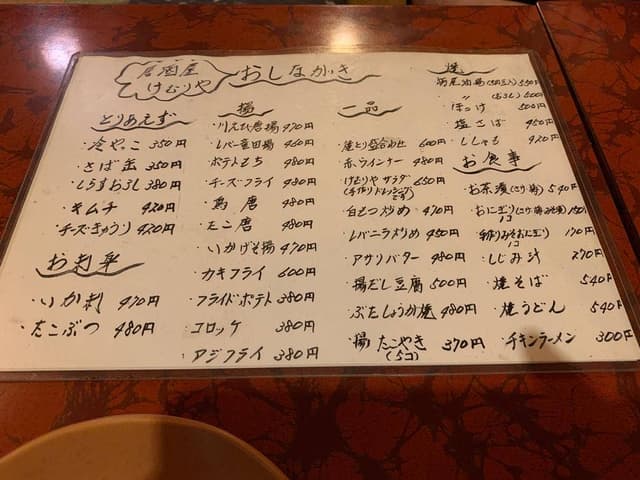 居酒屋
けむりや
おしながき
とりあえず
・冷やっこ 350円
・さば缶 350円
・しらすおろし 380円
・キムチ 420円
・チーズきゅうり 420円
お刺身
・いか刺 470円
・たこぶつ 480円
揚
・川えび唐揚 470円
・レバー竜田揚 460円
・ポテトもち 480円
・チーズフライ 480円
・鳥唐 480円
・たこ唐 480円
・いかげそ揚 470円
・カキフライ 600円
・フライドポテト 380円
・コロッケ 380円
・アジフライ 380円
一品
・焼とり盛合わせ 600円
・赤ウインナー 480円
・けむりやサラダ 650円
(手作りドレッシングです)
・白もつ炒め 470円
・レバニラ炒め 450円
・アサリバター 480円
・揚だし豆腐 500円
・ぶたしょうが焼 480円
・揚たこやき 370円
(5コ)
焼
・ 〃 500円
・ほっけ 500円
・塩さば 450円
・ししゃも 420円
お食事
・お茶漬(さけ・梅) 540円
・おにぎり 1コ 150円
・焼みそおにぎり 1コ 170円
・しじみ汁 270円
・焼そば 540円
・焼うどん 540円
・チキンラーメン 300円